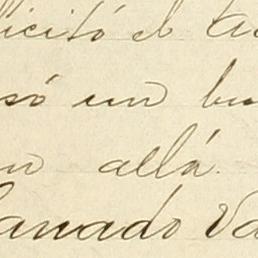 licitó el
só un bu
n allá.
anado Va